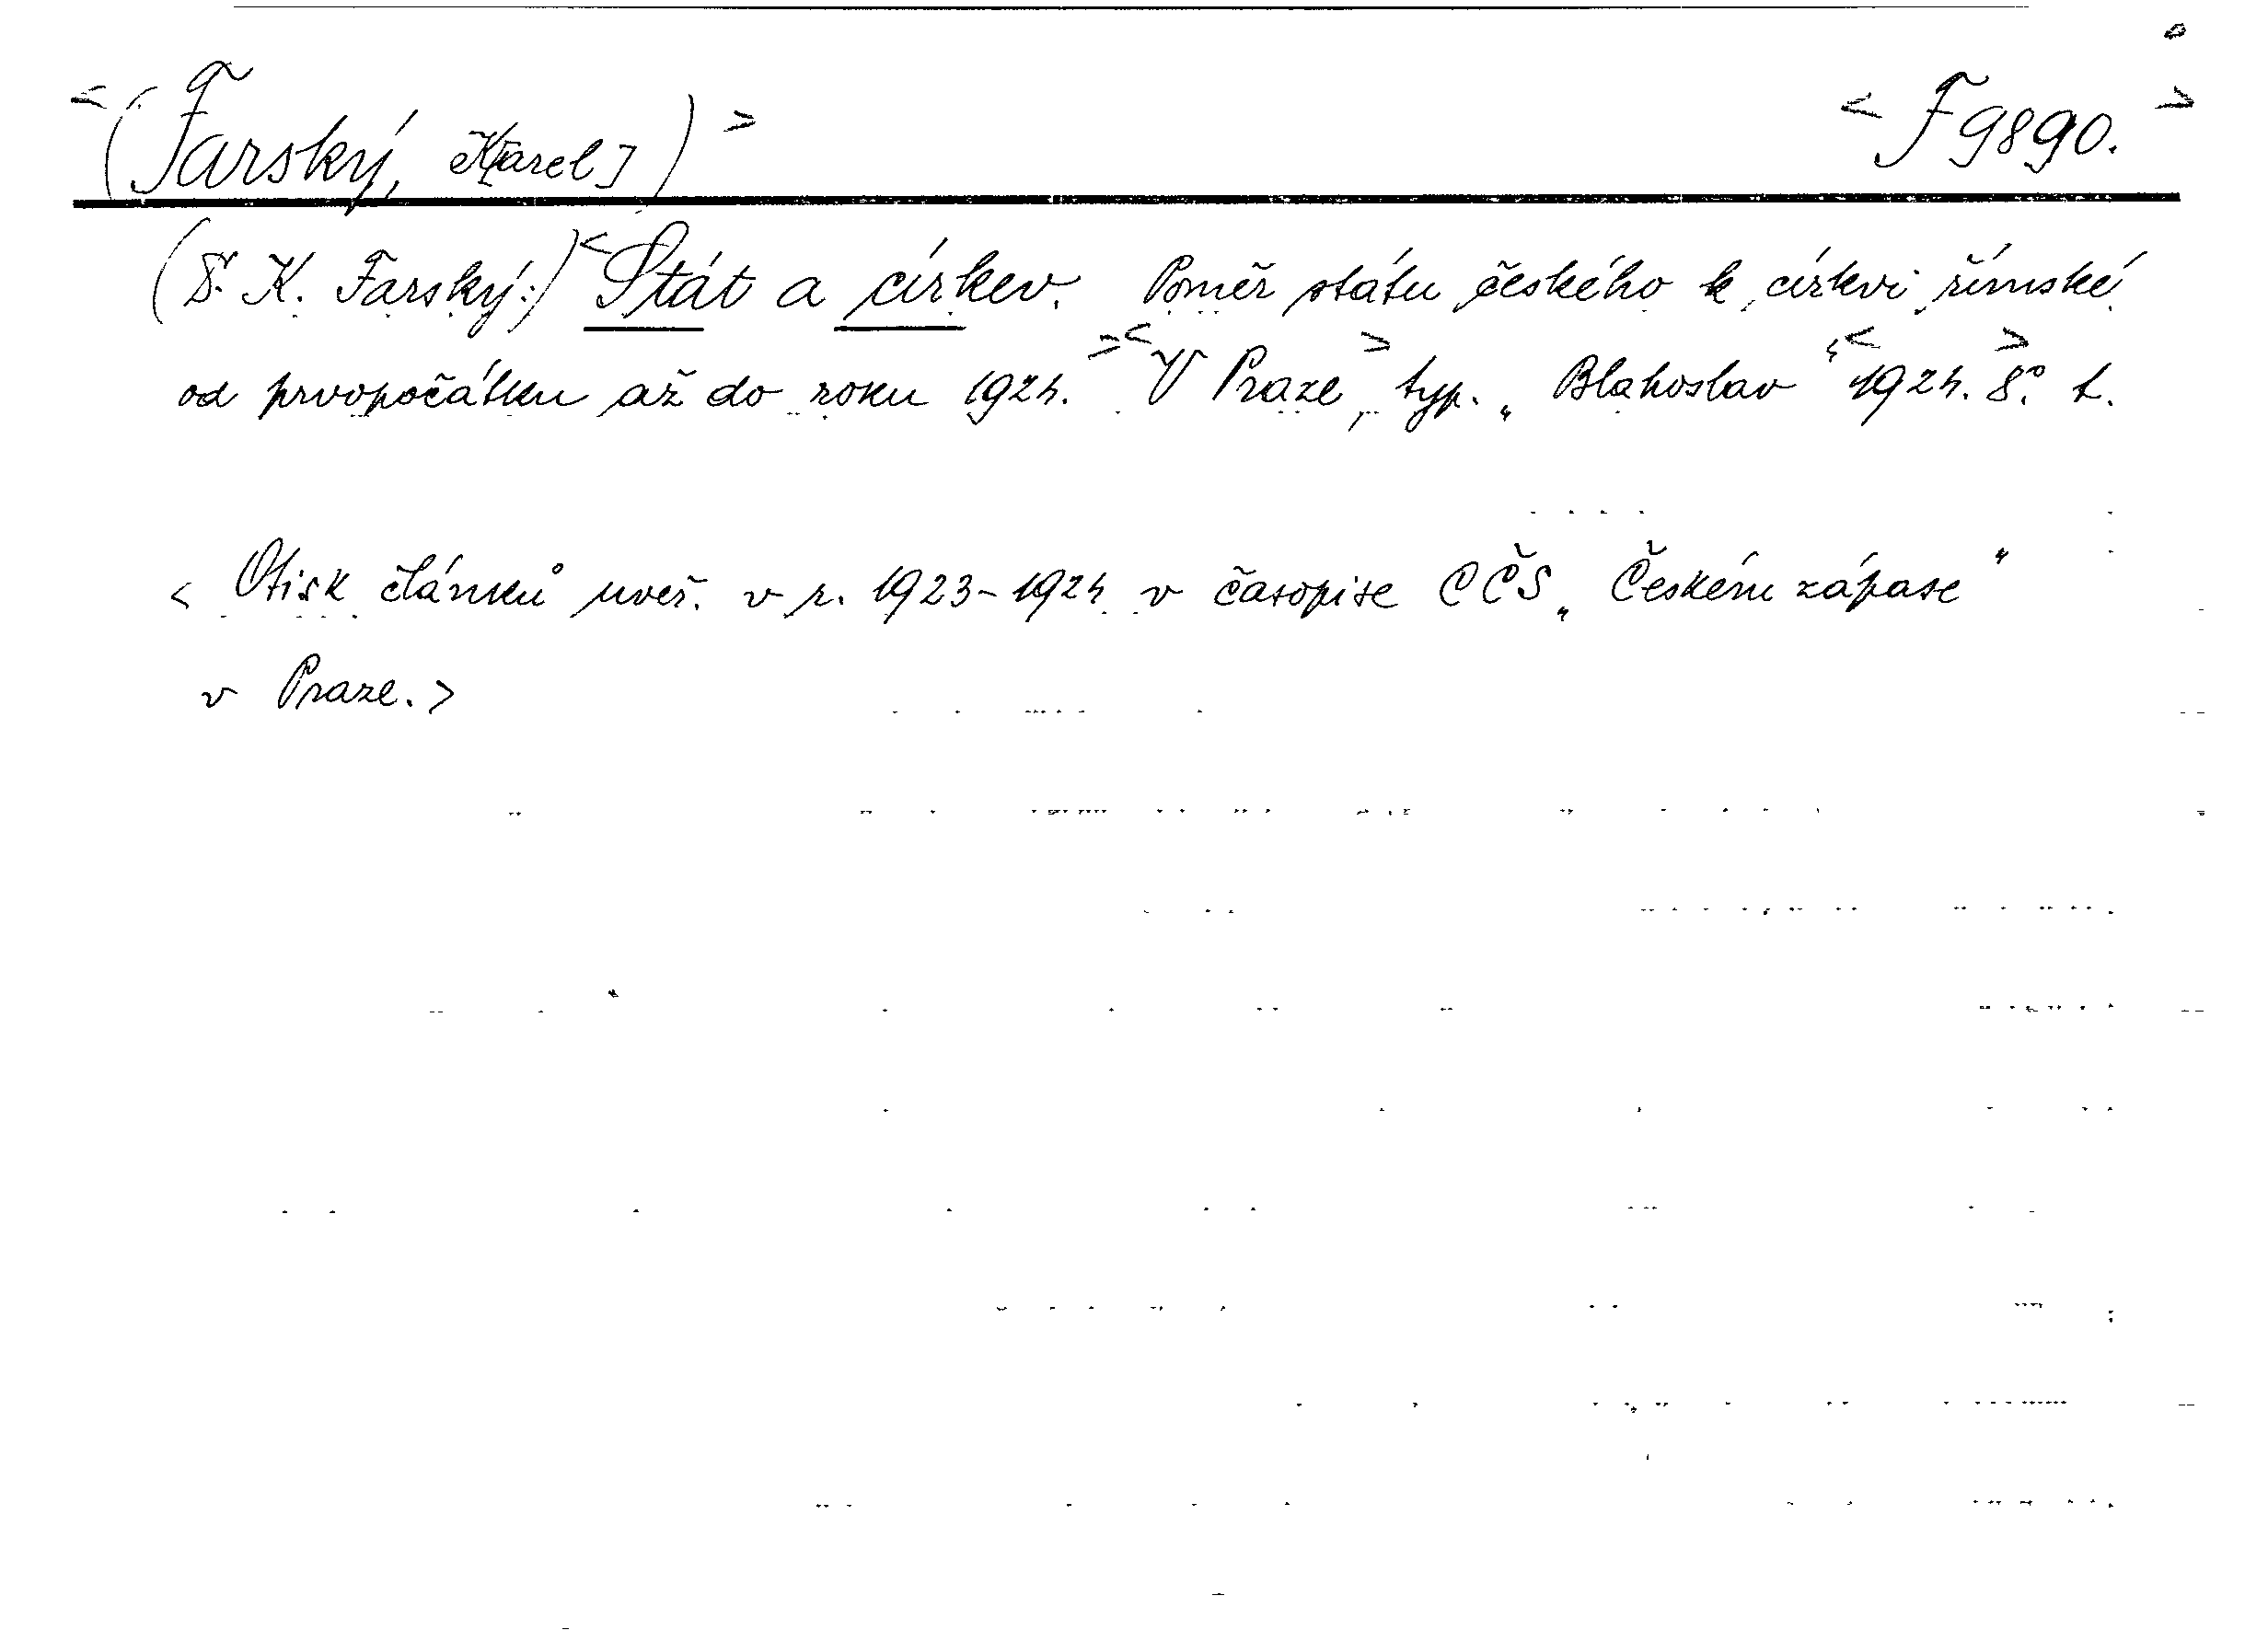 <(Farský, K[arel])> <F 9890.>
(Dr. K. Farský:) <Stát a církev. Poměr státu českého k církvi římské
od prvopočátku až do roku 1924.> <V Praze,> typ. „Blahoslav“ <1924.> 8°. t.
<Otisk článků uveř. v r. 1923-1924 v časopise CČS „Českém zápase“
v Praze.>